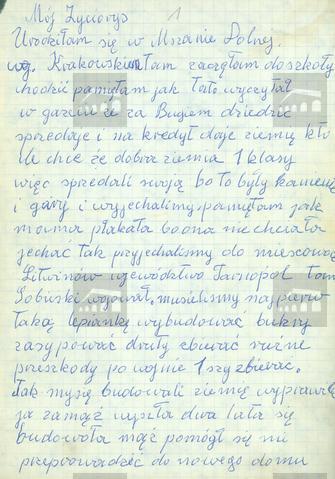 Mój Życiorys 1
Urodziłam się w Mszanie Dolnej
wg. Krakowskim tam zaczęłam do szkoły
chodzić pamiętam jak Tato wyczytał
w gazecie że za Bugiem dziedzic
sprzedaje i na kredyt daje ziemię kto
chce że dobra ziemia 1 klasy
więc sprzedali swoją bo to były kamienie
i góry i wyjechaliśmy, pamiętam jak
mama płakała bo ona nie chciała
jechać tak przyjechaliśmy do miejscowoś
Litwinów województwo Tarnopol tam
Sobieski wojował. musieliśmy najpierw
taką lepiankę wybudować bukry
zasypować druty zbierać różne
przeszkody po wojnie 1szy zbierać.
Jak myśą budowali ziemię wyprawili
ja zamąż wyszła dwa lata się
budowała mąż pomógł się nie
przeprowadzić do nowego domu